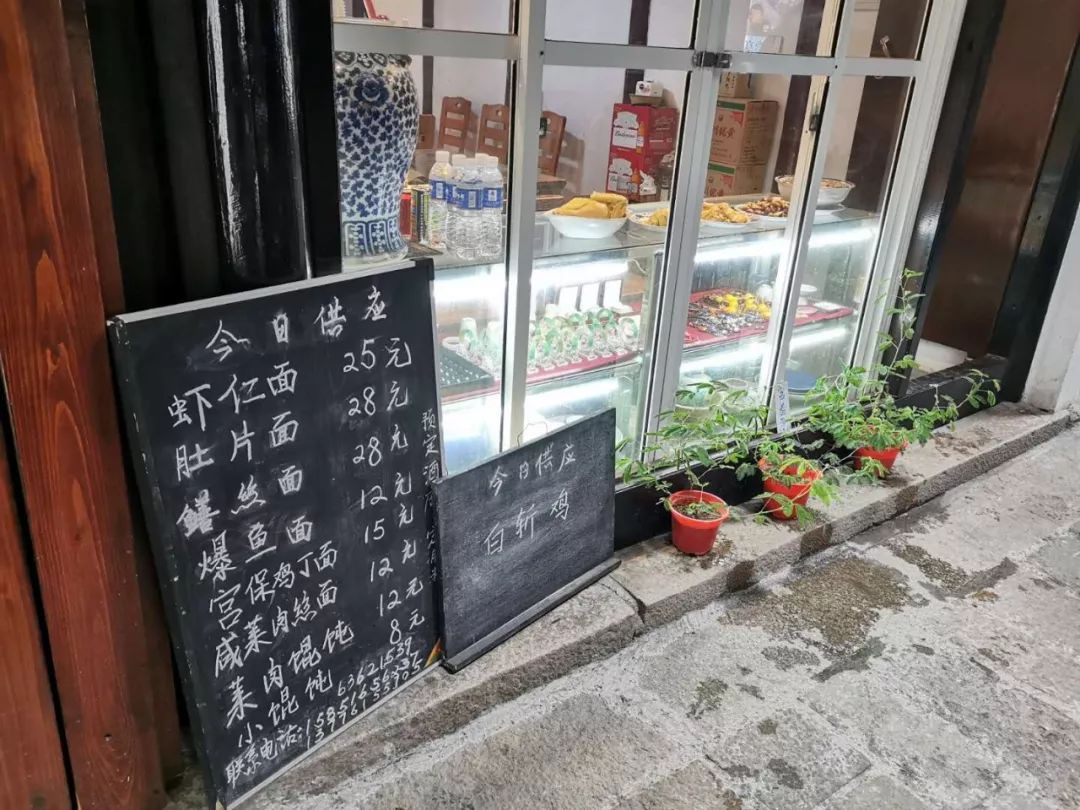 今日供应
虾仁面 25元
肚片面 28元
鳝絲面 28元
爆鱼面 12元
宫保鸡丁面 15元
咸菜肉絲面 12元
菜肉馄饨 12元
小馄饨 8元
联系电话: 63621539
预定酒
今日供应
白斩鸡